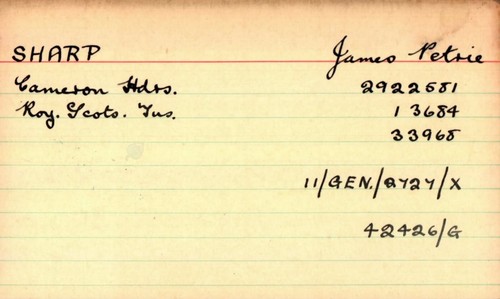 SHARP James Petrie
Cameron Hdrs. 2922581
Roy. Scots. Fus. 13684
33968
11/GEN./8727/X
42426/G